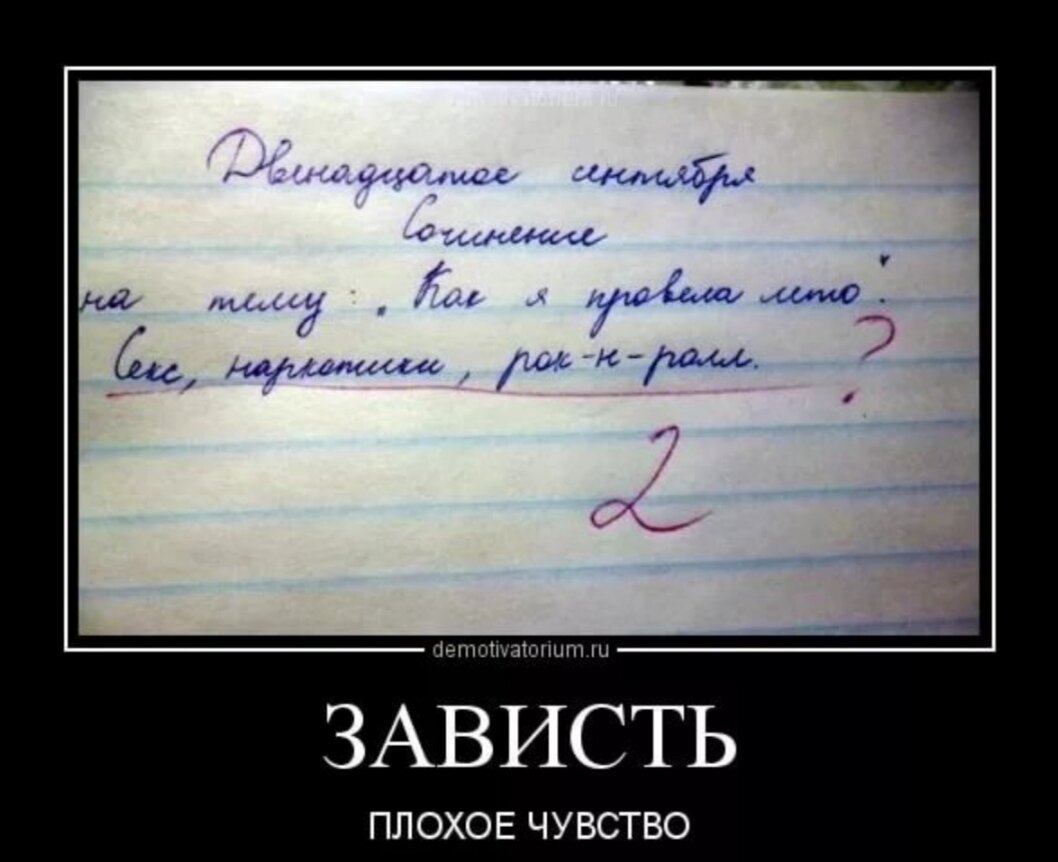 Двенадцатое сентября
Сочинение
на тему: „Как я провела лето".
Секс, наркотики, рок-н-ролл. ?
2
demotivatorium.ru
ЗАВИСТЬ
ПЛОХОЕ ЧУВСТВО